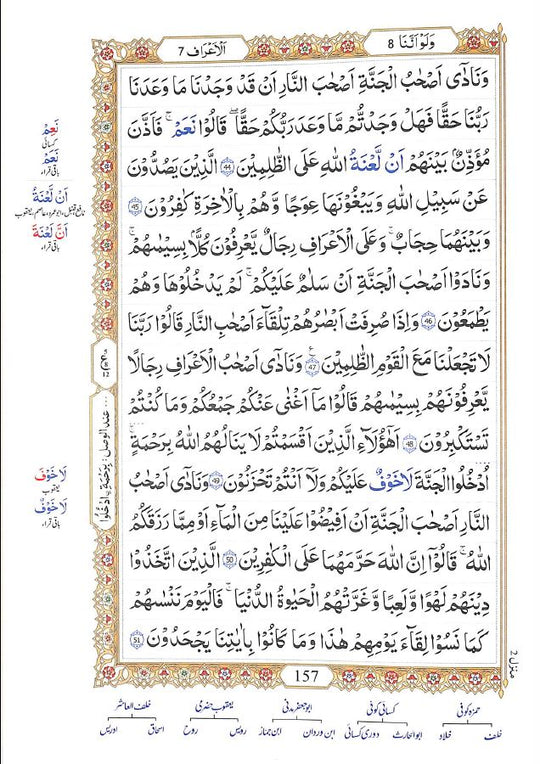 وَلَوْ اَنَّنَا 8
اَلْاَعْرَاف 7
وَنَادٰٓى اَصْحٰبُ الْجَنَّةِ اَصْحٰبَ النَّارِ اَنْ قَدْ وَجَدْنَا مَا وَعَدَنَا
رَبُّنَا حَقًّا فَهَلْ وَجَدْتُّمْ مَّا وَعَدَ رَبُّكُمْ حَقًّا ۖ قَالُوْا نَعَمْ ۚ فَاَذَّنَ
مُؤَذِّنٌۢ بَيْنَهُمْ اَنْ لَّعْنَةُ اللّٰهِ عَلَى الظّٰلِمِيْنَ ﴿44﴾ الَّذِيْنَ يَصُدُّوْنَ
عَنْ سَبِيْلِ اللّٰهِ وَيَبْغُوْنَهَا عِوَجًا وَّهُمْ بِالْاٰخِرَةِ كٰفِرُوْنَ ﴿45﴾
وَبَيْنَهُمَا حِجَابٌ ۚ وَعَلَى الْاَعْرَافِ رِجَالٌ يَّعْرِفُوْنَ كُلًّۢا بِسِيْمٰىهُمْ ۚ
وَنَادَوْا اَصْحٰبَ الْجَنَّةِ اَنْ سَلٰمٌ عَلَيْكُمْ ۚ لَمْ يَدْخُلُوْهَا وَهُمْ
يَطْمَعُوْنَ ﴿46﴾ وَاِذَا صُرِفَتْ اَبْصٰرُهُمْ تِلْقَآءَ اَصْحٰبِ النَّارِ قَالُوْا رَبَّنَا
لَا تَجْعَلْنَا مَعَ الْقَوْمِ الظّٰلِمِيْنَ ﴿47﴾ وَنَادٰٓى اَصْحٰبُ الْاَعْرَافِ رِجَالًا
يَّعْرِفُوْنَهُمْ بِسِيْمٰىهُمْ قَالُوْا مَآ اَغْنٰى عَنْكُمْ جَمْعُكُمْ وَمَا كُنْتُمْ
تَسْتَكْبِرُوْنَ ﴿48﴾ اَهٰٓؤُلَآءِ الَّذِيْنَ اَقْسَمْتُمْ لَا يَنَالُهُمُ اللّٰهُ بِرَحْمَةٍ
اُدْخُلُوا الْجَنَّةَ لَا خَوْفٌ عَلَيْكُمْ وَلَآ اَنْتُمْ تَحْزَنُوْنَ ﴿49﴾ وَنَادٰٓى اَصْحٰبُ
النَّارِ اَصْحٰبَ الْجَنَّةِ اَنْ اَفِيْضُوْا عَلَيْنَا مِنَ الْمَآءِ اَوْ مِمَّا رَزَقَكُمُ
اللّٰهُ ۚ قَالُوْٓا اِنَّ اللّٰهَ حَرَّمَهُمَا عَلَى الْكٰفِرِيْنَ ﴿50﴾ الَّذِيْنَ اتَّخَذُوْا
دِيْنَهُمْ لَهْوًا وَّلَعِبًا وَّغَرَّتْهُمُ الْحَيٰوةُ الدُّنْيَا ۚ فَالْيَوْمَ نَنْسٰىهُمْ
كَمَا نَسُوْا لِقَآءَ يَوْمِهِمْ هٰذَا وَمَا كَانُوْا بِاٰيٰتِنَا يَجْحَدُوْنَ ﴿51﴾
157
نَعِمْ
کسائی
نَعَمْ
باقی قراء
اَنْ لَّعْنَةُ
نافع، قنبل، ابوعمرو، عاصم، یعقوب
اَنَّ لَّعْنَةَ
باقی قراء
عند الوصل : بِرَحْمَةٍ ادْخُلُوا
لَا خَوْفَ
یعقوب
لَا خَوْفٌ
باقی قراء
منزل 2
حمزہ کوفی
کسائی کوفی
ابوجعفر مدنی
یعقوب حضرمی
خلف العاشر
خلف
خلاد
ابو الحارث
دوری کسائی
ابن وردان
ابن جماز
رویس
روح
اسحاق
ادریس